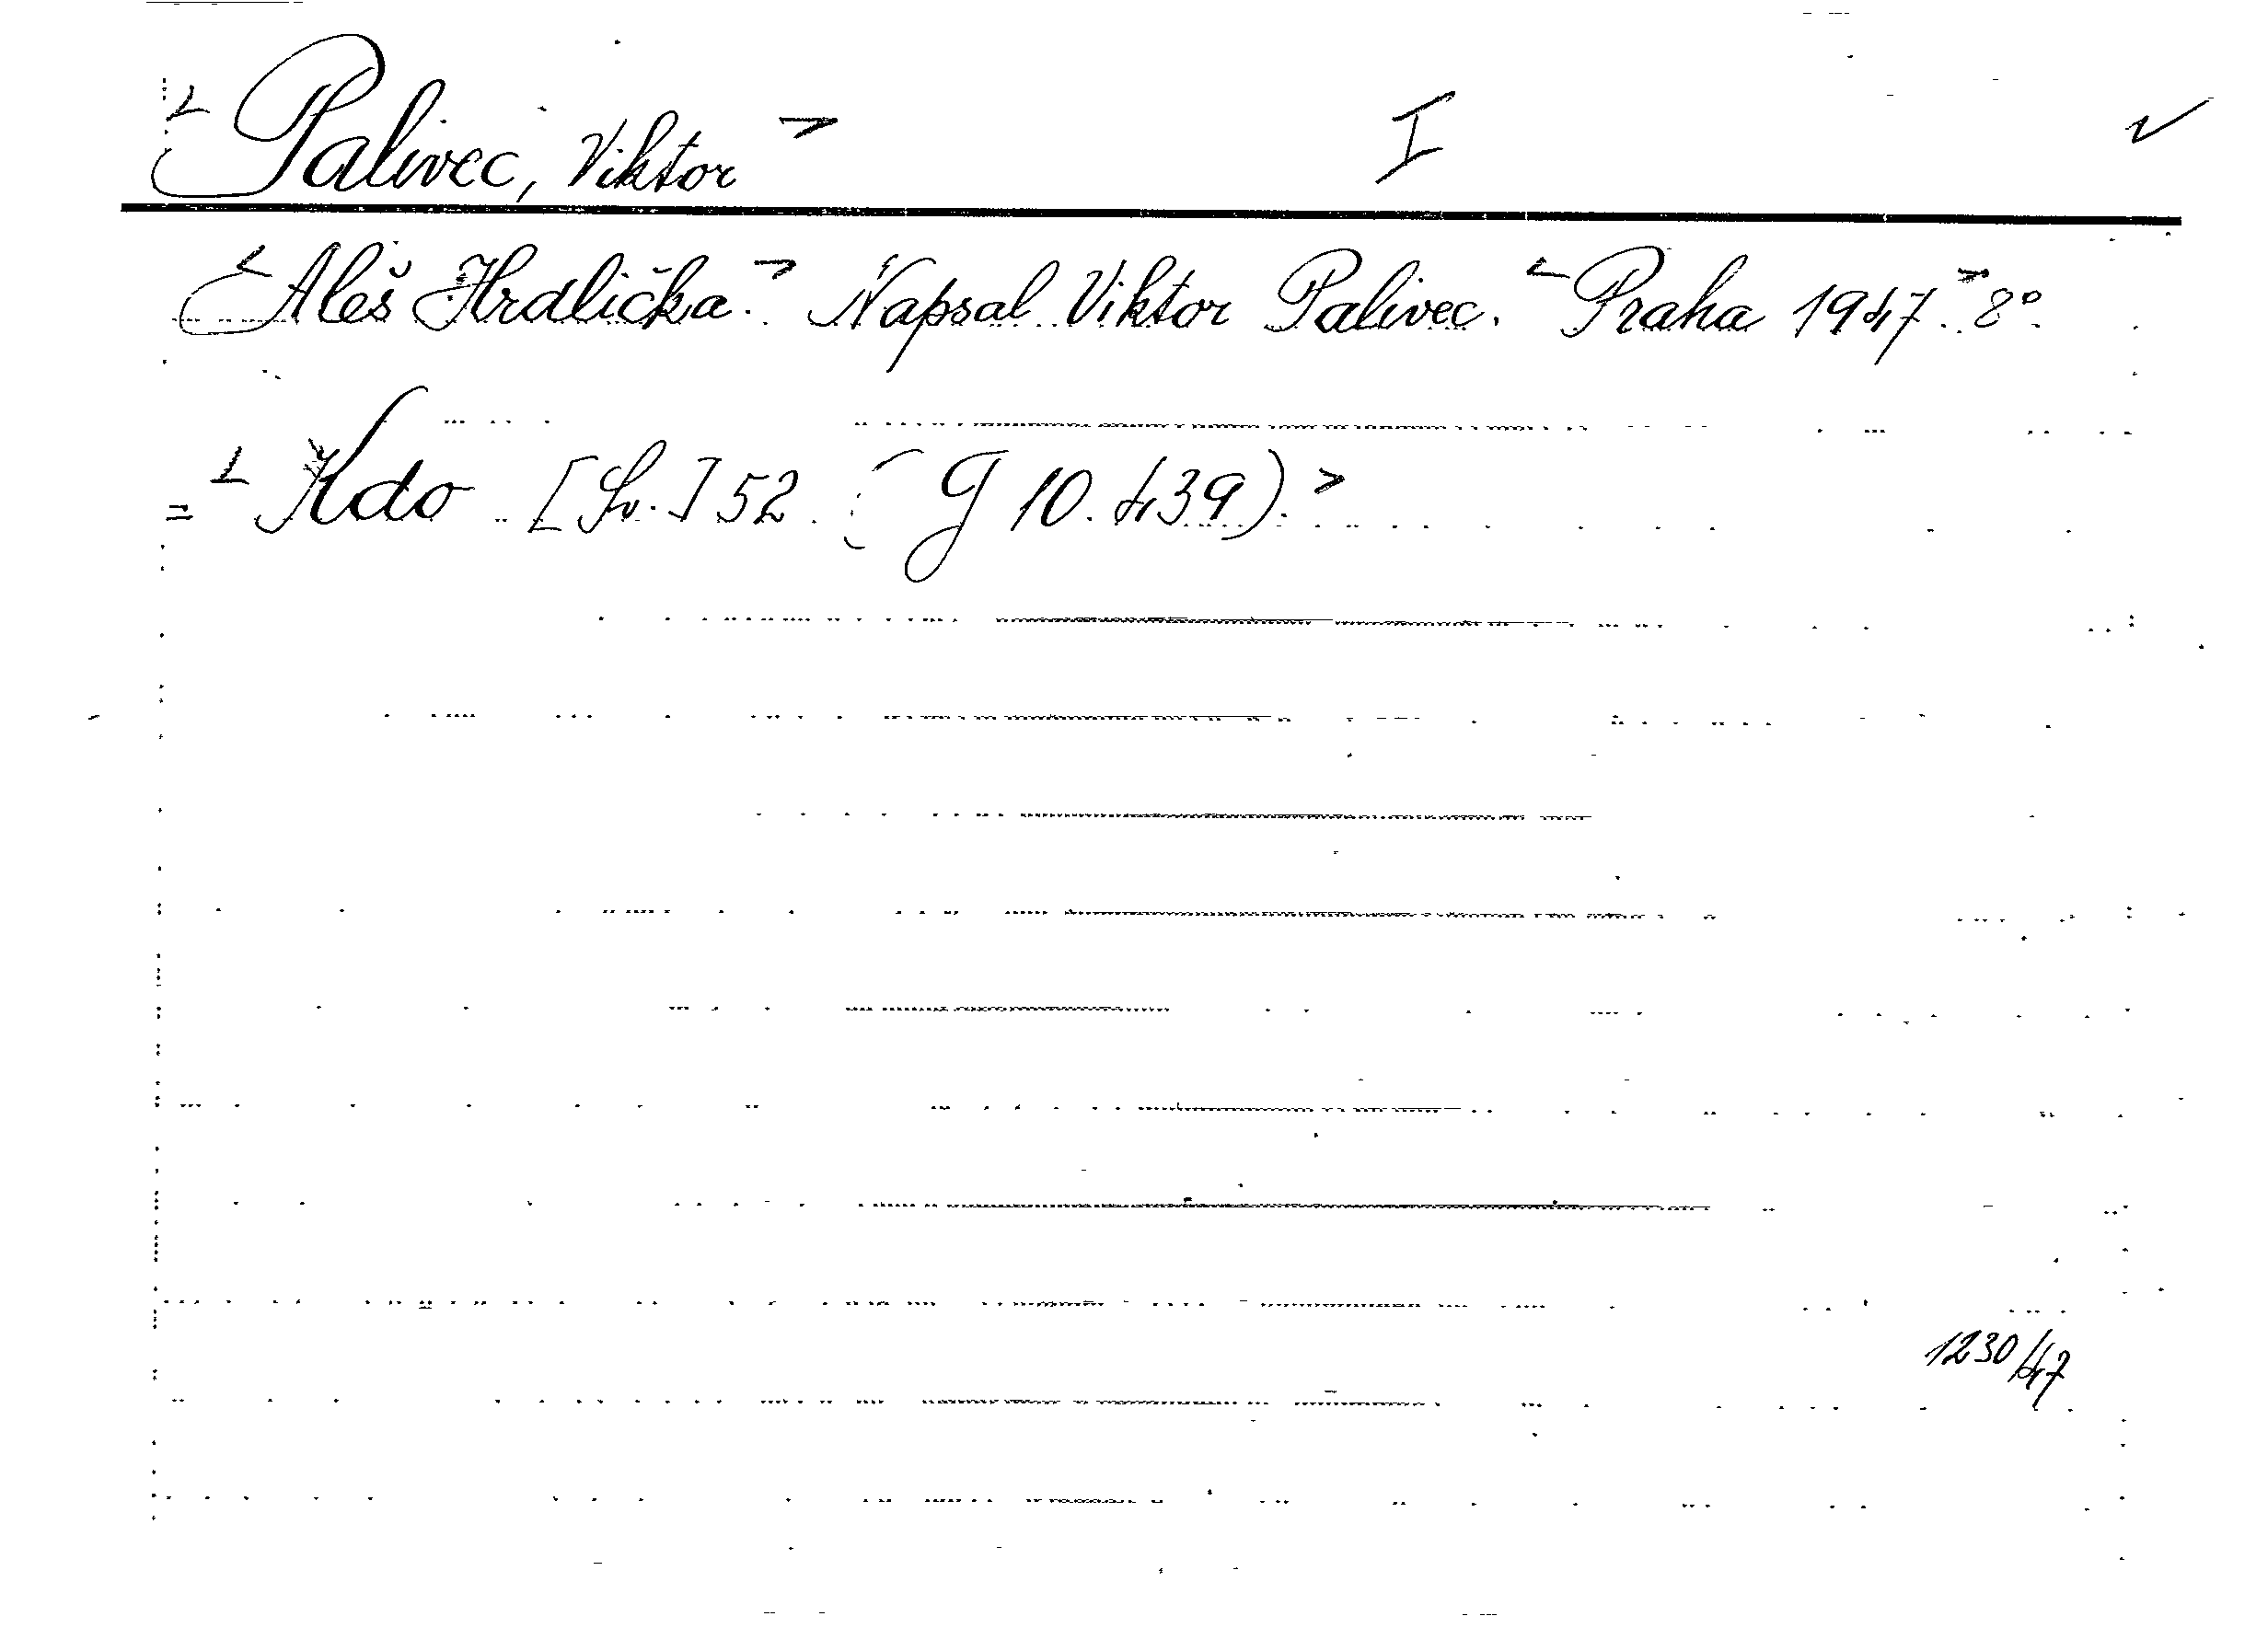 Palivec, Viktor I
Aleš Hrdlička. Napsal Viktor Palivec. Praha 1947. 8°.
= Kdo [Sv.] 52. (G 10.439).
1230/47